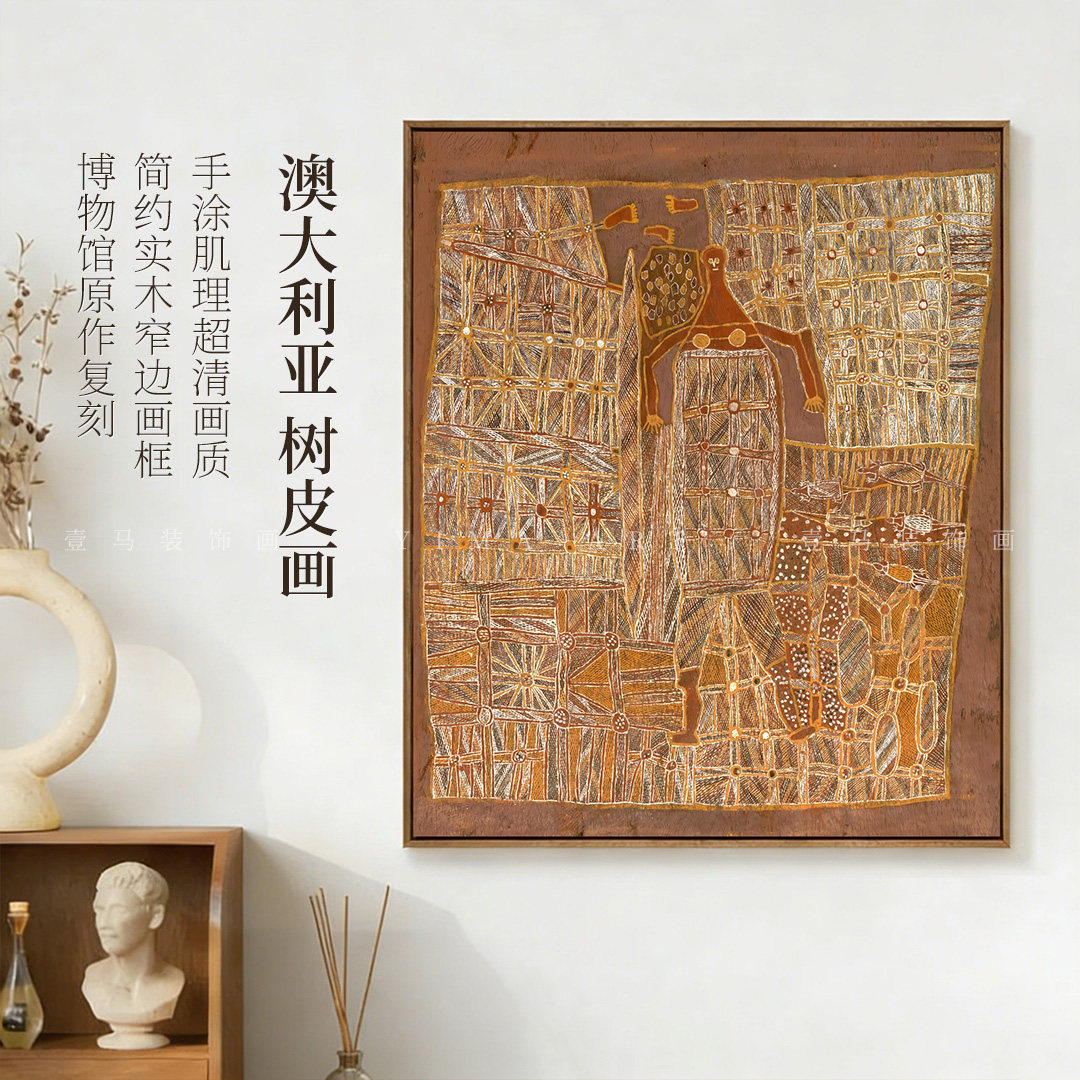 澳大利亚 树皮画
手涂肌理超清画质
简约实木窄边画框
博物馆原作复刻
壹马装饰画
壹马装饰画